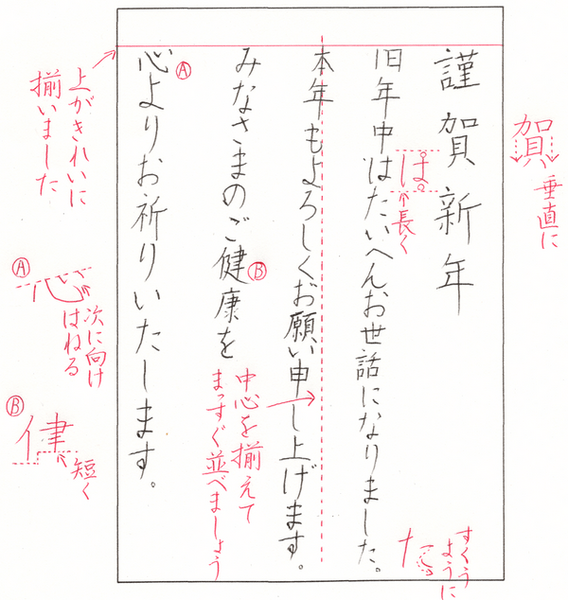 謹賀新年
旧年中はたいへんお世話になりました。
本年もよろしくお願い申し上げます。
みなさまのご健康を
心よりお祈りいたします。
賀
垂直に
は
↑長く
た
すくう
ように
中心を揃えて
まっすぐ並べましょう
Ⓐ
Ⓑ
上がきれいに
揃いました
Ⓐ
心
次に向け
はねる
Ⓑ
律
短く